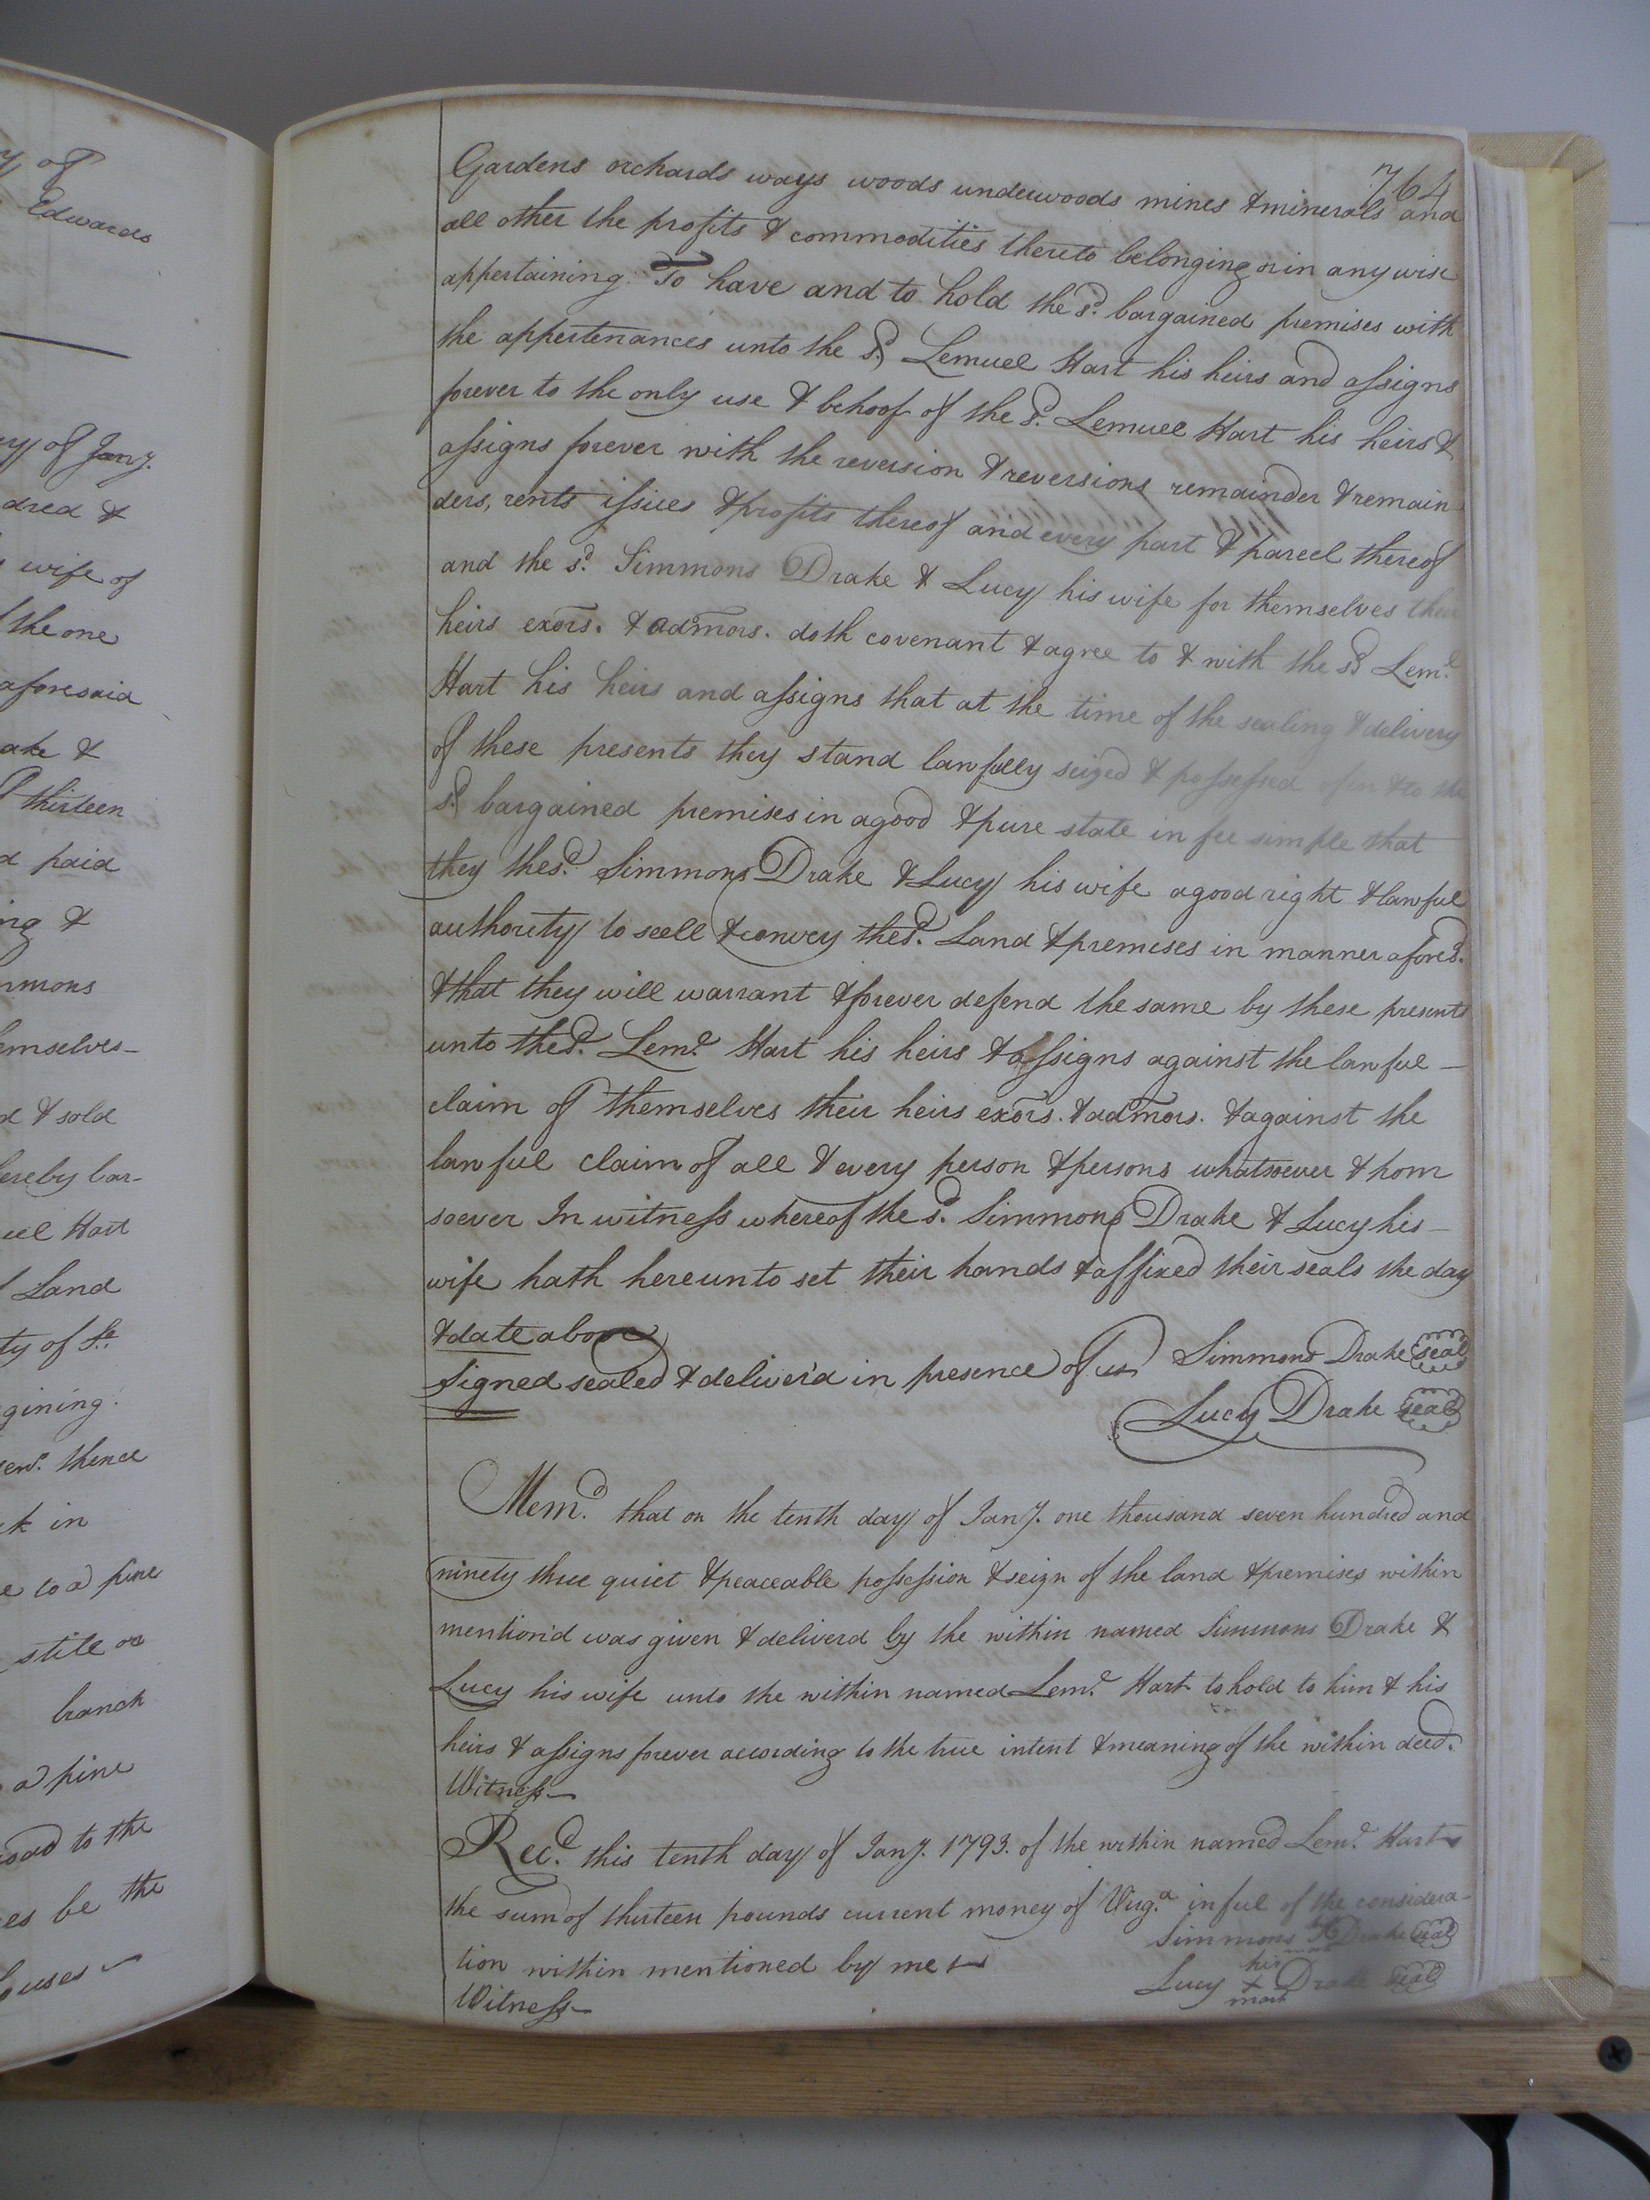 y of
Edwards
ry of Jany.
dred &
wife of
the one
aforesaid
ake &
thirteen
d paid
ing &
mmons
emselves
d & sold
ereby bar-
uel Hart
Land
ty of
gining
thence
k in
e to a pine
stile or
branch
a pine
road to the
es be the
houses
764
Gardens orchards ways woods underwoods mines & minerals and
all other the profits & commodities thereto belonging or in any wise
appertaining. To have and to hold the sd. bargained premises with
the appertenances unto the sd. Lemuel Hart his heirs and assigns
forever to the only use & behoof of the sd. Lemuel Hart his heirs &
assigns forever with the reversion & reversions remainder & remain
ders, rents issues & profits thereof and every part & parcel thereof
and the sd. Simmons Drake & Lucy his wife for themselves their
heirs exors. & admors. doth covenant & agree to & with the sd. Leml.
Hart his heirs and assigns that at the time of the sealing & delivery
of these presents they stand lawfully seized & possessed of in & to the
sd. bargained premises in a good & pure state in fee simple that
they the sd. Simmons Drake & Lucy his wife a good right & lawful
authority to sell & convey the sd. Land & premises in manner aforesd.
& that they will warrant & forever defend the same by these presents
unto the sd. Leml. Hart his heirs & assigns against the lawful
claim of themselves their heirs exors. & admors. & against the
lawful claim of all & every person & persons whatsoever & hom
soever In witness whereof the sd. Simmons Drake & Lucy his
wife hath hereunto set their hands & affixed their seals the day
& date above
Signed sealed & deliver'd in presence of us Simmons Drake seal
Lucy Drake seal
Memd. that on the tenth day of Jany. one thousand seven hundred and
ninety three quiet & peaceable possession & seizn of the land & premises within
mention'd was given & deliverd by the within named Simmons Drake &
Lucy his wife unto the within named Leml. Hart to hold to him & his
heirs & assigns forever according to the true intent & meaning of the within deed.
Witness
Recd. this tenth day of Jany. 1793. of the within named Leml. Hart
the sum of thirteen pounds current money of Virga. in ful of the considera-
tion within mentioned by me
Simmons Drake seal
his
Lucy + Drake seal
mark
Witness